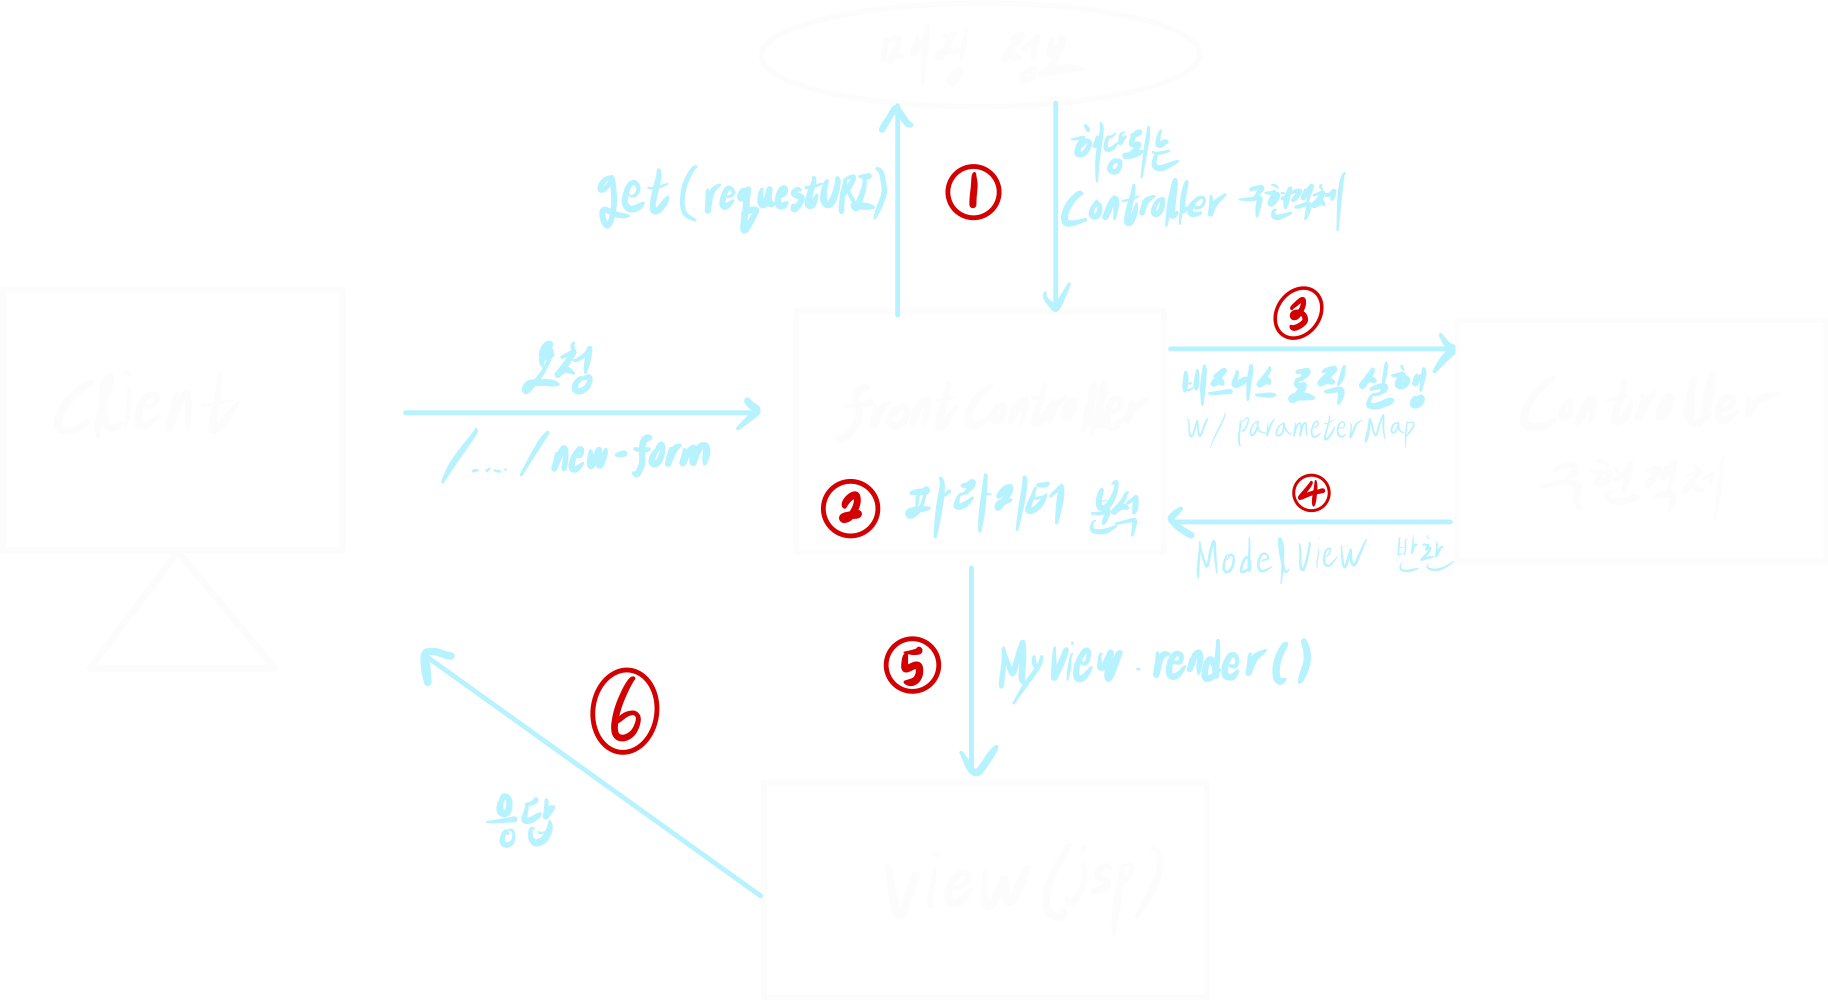 매핑 정보
get(requestURI)
①
해당되는
Controller 구현객체
Client
요청
/..... /new-form
frontController
② 파라미터 분석
③
비즈니스 로직 실행
w/ parameterMap
④
ModelView 반환
Controller
구현객체
⑤
MyView.render()
⑥
응답
View(jsp)